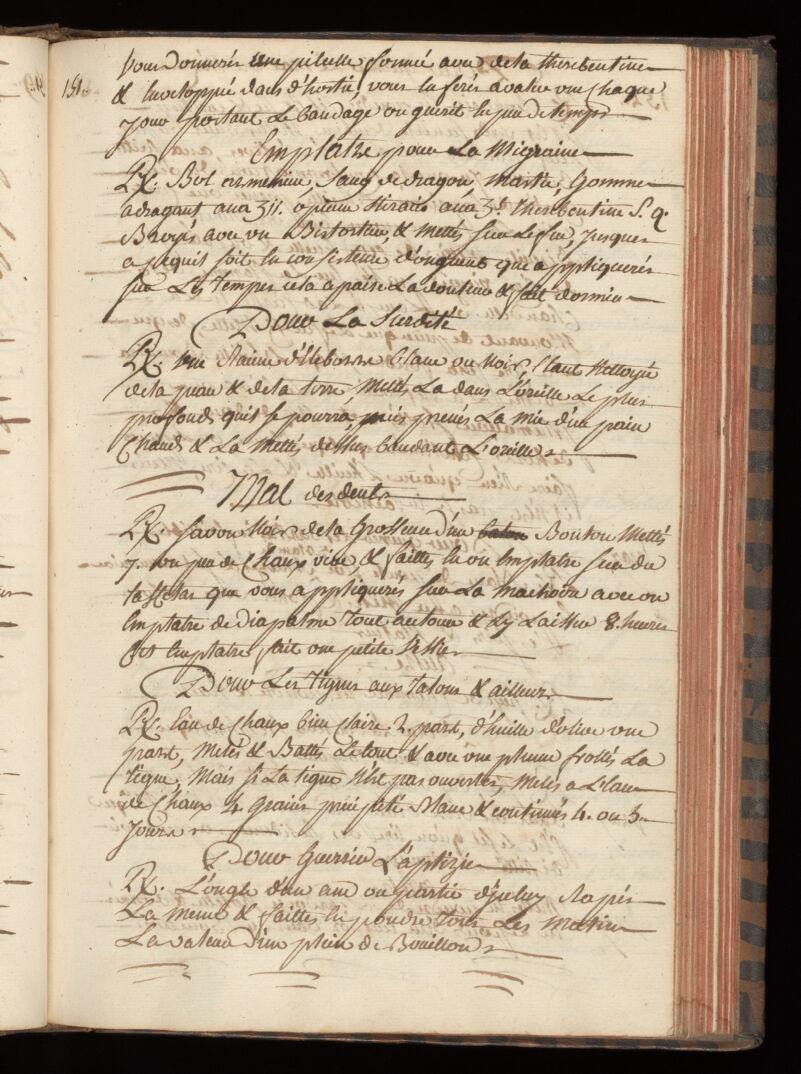 151.
Vous Donnerés une pilulle formée avec de la therebentine
& Enveloppée dans d'hostie, vous la ferés avaler une Chaque
Jour portant Le bandage on guerit en peu de temps
Emplatre pour La Migraine
Rx. Bol armenien, Sang de dragon, Mastic, Gomme
adragant ana 3ii. opium Storax ana 3j. therebentine S. q.
Broyés avec un Bistortier, & Mettés sur Le feu, Jusques
a ce quil soit en consistence d'onguent que appliquerés
sur Les temples cela apaise La douleur & fait dormir
Pour La Surdité
Rx. une Racine d'Eleborre Blanc ou Noir, Etant Nettoyée
de la peau & de la terre, Mettés La dans L'oreille Le plus
profond quil se pourra, puis prenés La mie d'un pain
Chaud & La Mettés dessus bandant L'oreille
Mal de dents
Rx. Savon Noir de la Grosseur d'un Bouton Mettés
y un peu de Chaux vive, & faittes en un Emplatre sur du
taffetas que vous appliquerés sur La machoire avec un
Emplatre de diapalme tout autour & Ly Laisser 8. heures
Cet Emplatre fait une petite Vessie
Pour Les tignes aux talons & ailleurs
Rx. Eau de Chaux bien Claire 2. part, d'huille d'olive une
part, Melés & Battés Le tout & avec une plume frottés La
tigne, Mais si La tigne N'est pas ouverte, Melés a L'eau
de Chaux 4. Grains precipité Blanc & continués 4. ou 5.
Jours
Pour Guerir L'aptizie
Rx. L'ongle d'un ane ou partie d'Iceluy Rapés
La menu & faittes en prendre tous Les Matins
La valeur d'un plein de Bouillon